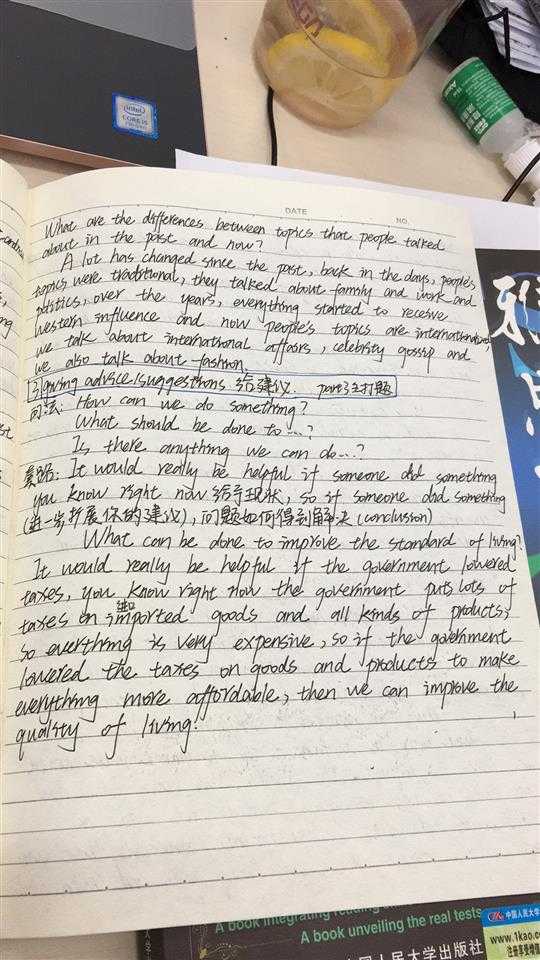 intel
CORE i5
DATE
NO.
What are the differences between topics that people talked
about in the past and now?
A lot has changed since the past, back in the days, people's
topics were traditional, they talked about family and work and
politics, over the years, everything started to receive
Western influence and now people's topics are international,
we talk about international affairs, celebrity gossip and
we also talk about fashion.
3 giving advice/suggestions 给建议. part3主打题
问法: How can we do something?
What should be done to...?
Is there anything we can do...?
套路: It would really be helpful if someone did something
you know right now 给予现状, so if someone did something
(进一步扩展你的建议), 问题如何得到解决 (conclusion)
What can be done to improve the standard of living?
It would really be helpful if the government lowered
taxes, you know right now the government puts lots of
进口
taxes on imported goods and all kinds of products,
so everthing is very expensive, so if the government
lowered the taxes on goods and products to make
everything more affordable, then we can improve the
quality of living.
雅
思
A book integrating reading
A book unveiling the real tests
中国人民大学出版社
中国人民大学
www.1kao.co
注册享受增值